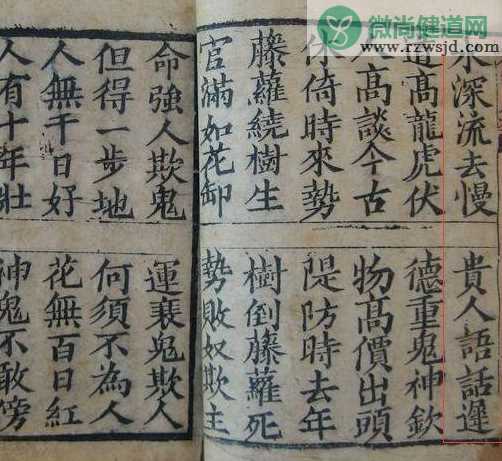 微尚健道网
www.rzwsjd.com
水深流去慢 貴人語話遲
道高龍虎伏 德重鬼神欽
人高談今古 物高價出頭
休倚時來勢 隄防時去年
藤蘿繞樹生 樹倒藤蘿死
官滿如花卸 勢敗奴欺主
命強人欺鬼 運衰鬼欺人
但得一步地 何須不為人
人無千日好 花無百日紅
人有十年壯 神鬼不敢傍